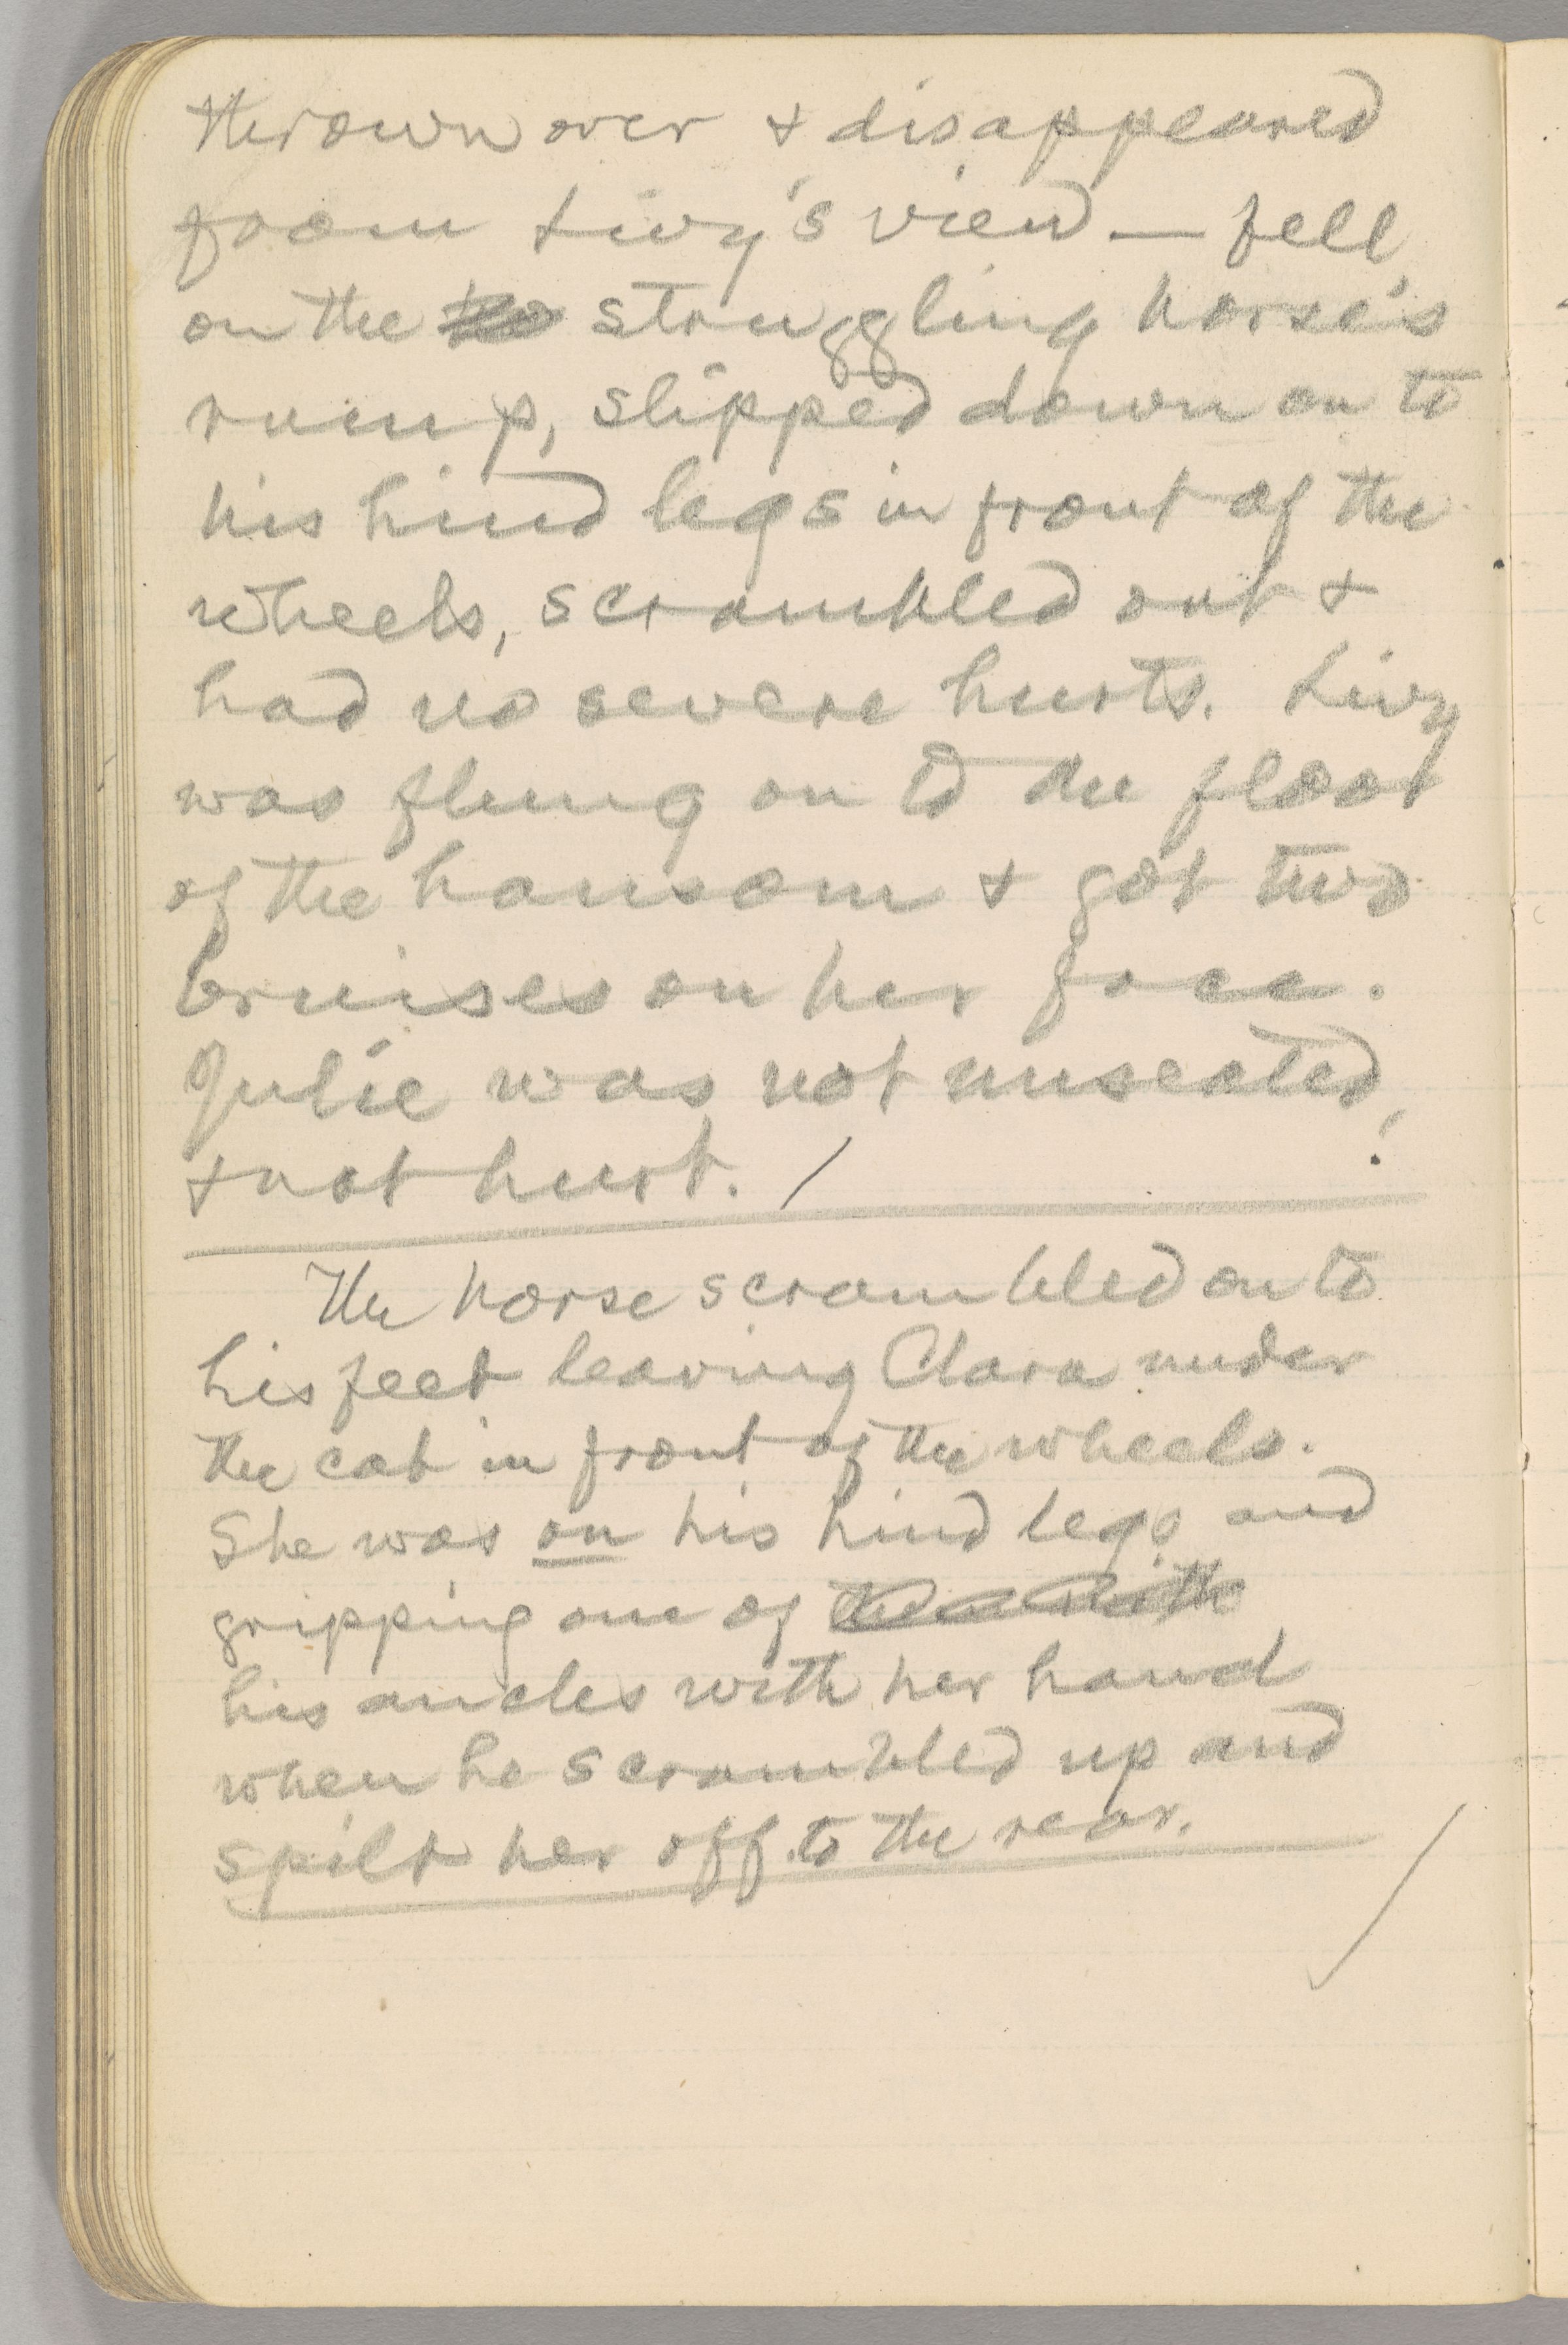 thrown over & disappeared
from Livy's view — fell
on the struggling horse's
rump, slipped down on to
his hind legs in front of the
wheels, scrambled out &
had no severe hurts. Livy
was flung on to the floor
of the hansom & got two
bruises on her face.
Julie was not unseated,
& not hurt. /
The horse scrambled on to
his feet leaving Clara under
the cab in front of the wheels.
She was on his hind legs and
gripping one of
his ancles with her hand
when he scrambled up and
spilt her off to the rear.